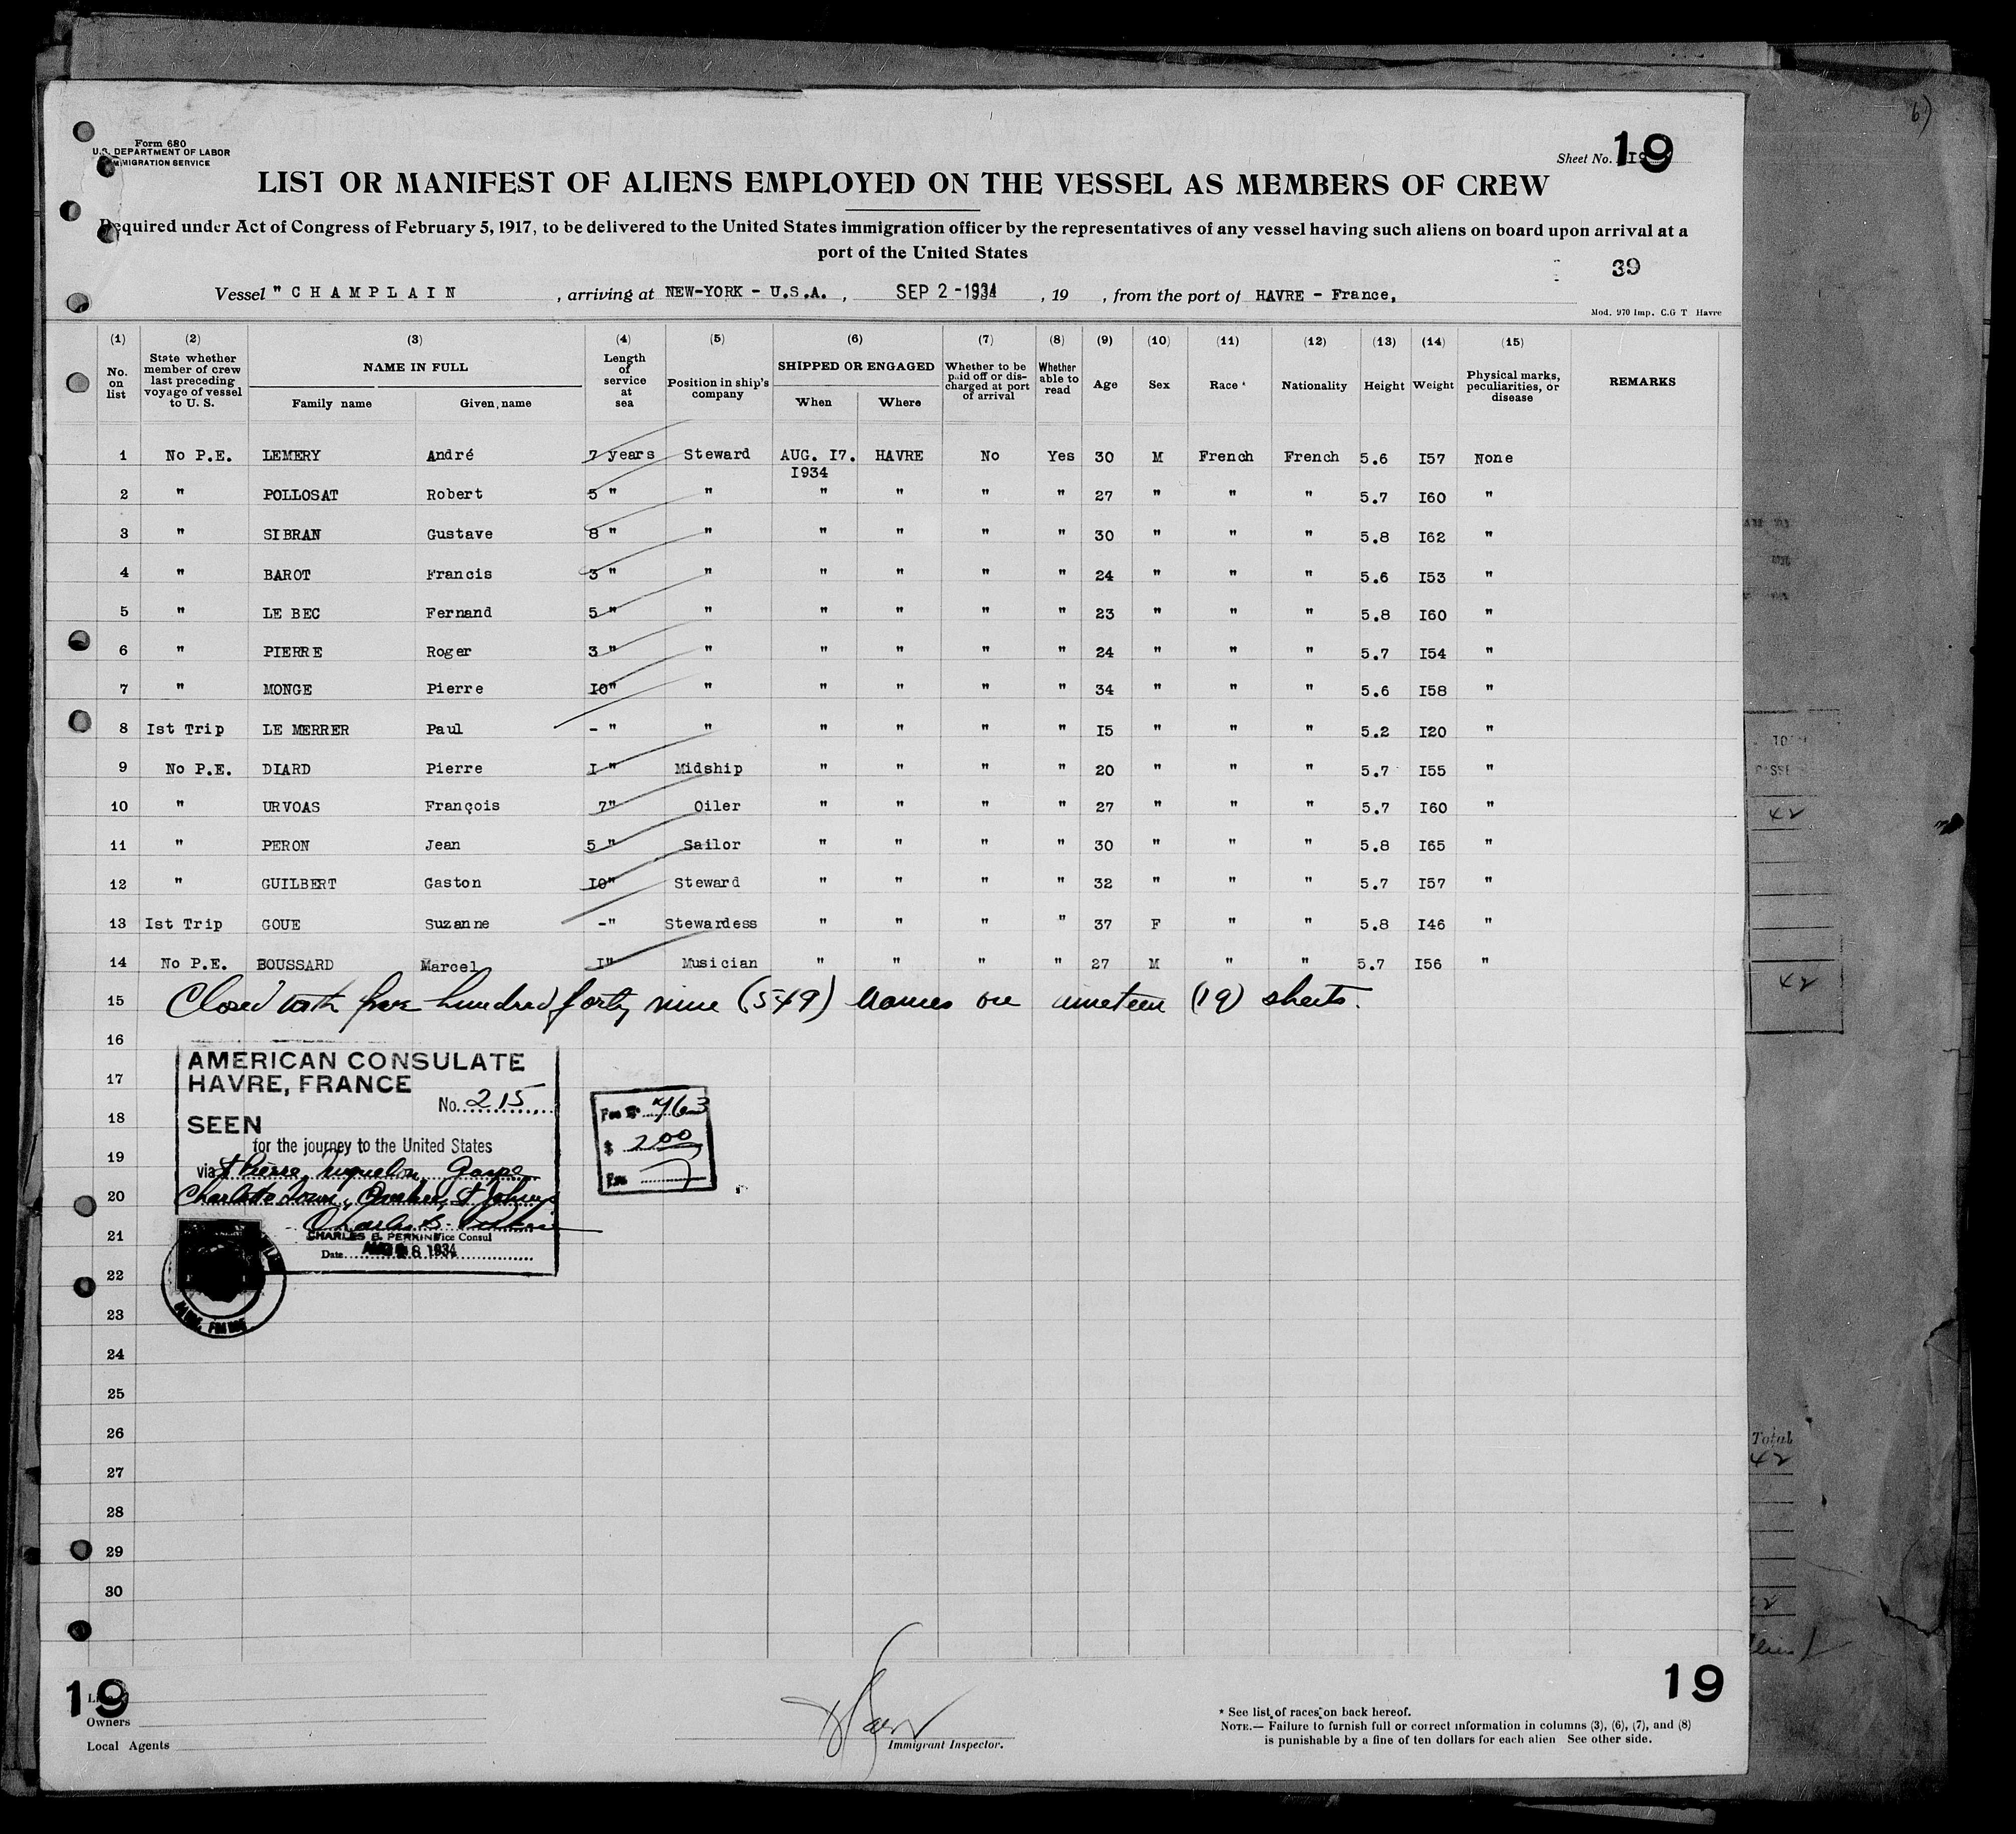 6)
Form 680
U.S. DEPARTMENT OF LABOR
IMMIGRATION SERVICE
Sheet No. 19
LIST OR MANIFEST OF ALIENS EMPLOYED ON THE VESSEL AS MEMBERS OF CREW
Required under Act of Congress of February 5, 1917, to be delivered to the United States immigration officer by the representatives of any vessel having such aliens on board upon arrival at a
port of the United States
39
Vessel " CHAMPLAIN , arriving at NEW-YORK - U.S.A. , SEP 2-1934 , 19 , from the port of HAVRE - France,
Mod. 970 Imp. C.G T Havre
(1) (2) (3) (4) (5) (6) (7) (8) (9) (10) (11) (12) (13) (14) (15)
No. on list State whether member of crew last preceding voyage of vessel to U. S. NAME IN FULL Family name Given name Length of service at sea Position in ship's company SHIPPED OR ENGAGED When Where Whether to be paid off or discharged at port of arrival Whether able to read Age Sex Race * Nationality Height Weight Physical marks, peculiarities, or disease REMARKS
1 No P.E. LEMERY André 7 years Steward AUG. I7. I934 HAVRE No Yes 30 M French French 5.6 I57 None
2 " POLLOSAT Robert 5 " " " " " " 27 " " " 5.7 I60 "
3 " SIBRAN Gustave 8 " " " " " " 30 " " " 5.8 I62 "
4 " BAROT Francis 3 " " " " " " 24 " " " 5.6 I53 "
5 " LE BEC Fernand 5 " " " " " " 23 " " " 5.8 I60 "
6 " PIERRE Roger 3 " " " " " " 24 " " " 5.7 I54 "
7 " MONGE Pierre I0" " " " " " 34 " " " 5.6 I58 "
8 Ist Trip LE MERRER Paul - " " " " " " I5 " " " 5.2 I20 "
9 No P.E. DIARD Pierre I " Midship " " " " 20 " " " 5.7 I55 "
10 " URVOAS François 7" Oiler " " " " 27 " " " 5.7 I60 "
11 " PERON Jean 5 " Sailor " " " " 30 " " " 5.8 I65 "
12 " GUILBERT Gaston I0" Steward " " " " 32 " " " 5.7 I57 "
13 Ist Trip GOUE Suzanne -" Stewardess " " " " 37 F " " 5.8 I46 "
14 No P.E. BOUSSARD Marcel I" Musician " " " " 27 M " " 5.7 I56 "
15 Closed with five hundred forty nine (549) names on nineteen (19) sheets.
16
AMERICAN CONSULATE
17 HAVRE, FRANCE
No. 215
18 SEEN
for the journey to the United States
19 via St Pierre, Miquelon, Gaspe
20 Charlotte Town, Quebec, St Johns
Charles B. Perkins
21 CHARLES B. PERKINS Vice Consul
Date AUG 8 1934
Fee No 463
$ 2.00
22
23
24
25
26
27
28
29
30
19
19
Owners
Local Agents
Immigrant Inspector.
* See list of races on back hereof.
NOTE.— Failure to furnish full or correct information in columns (3), (6), (7), and (8)
is punishable by a fine of ten dollars for each alien See other side.
42
42
Total
42